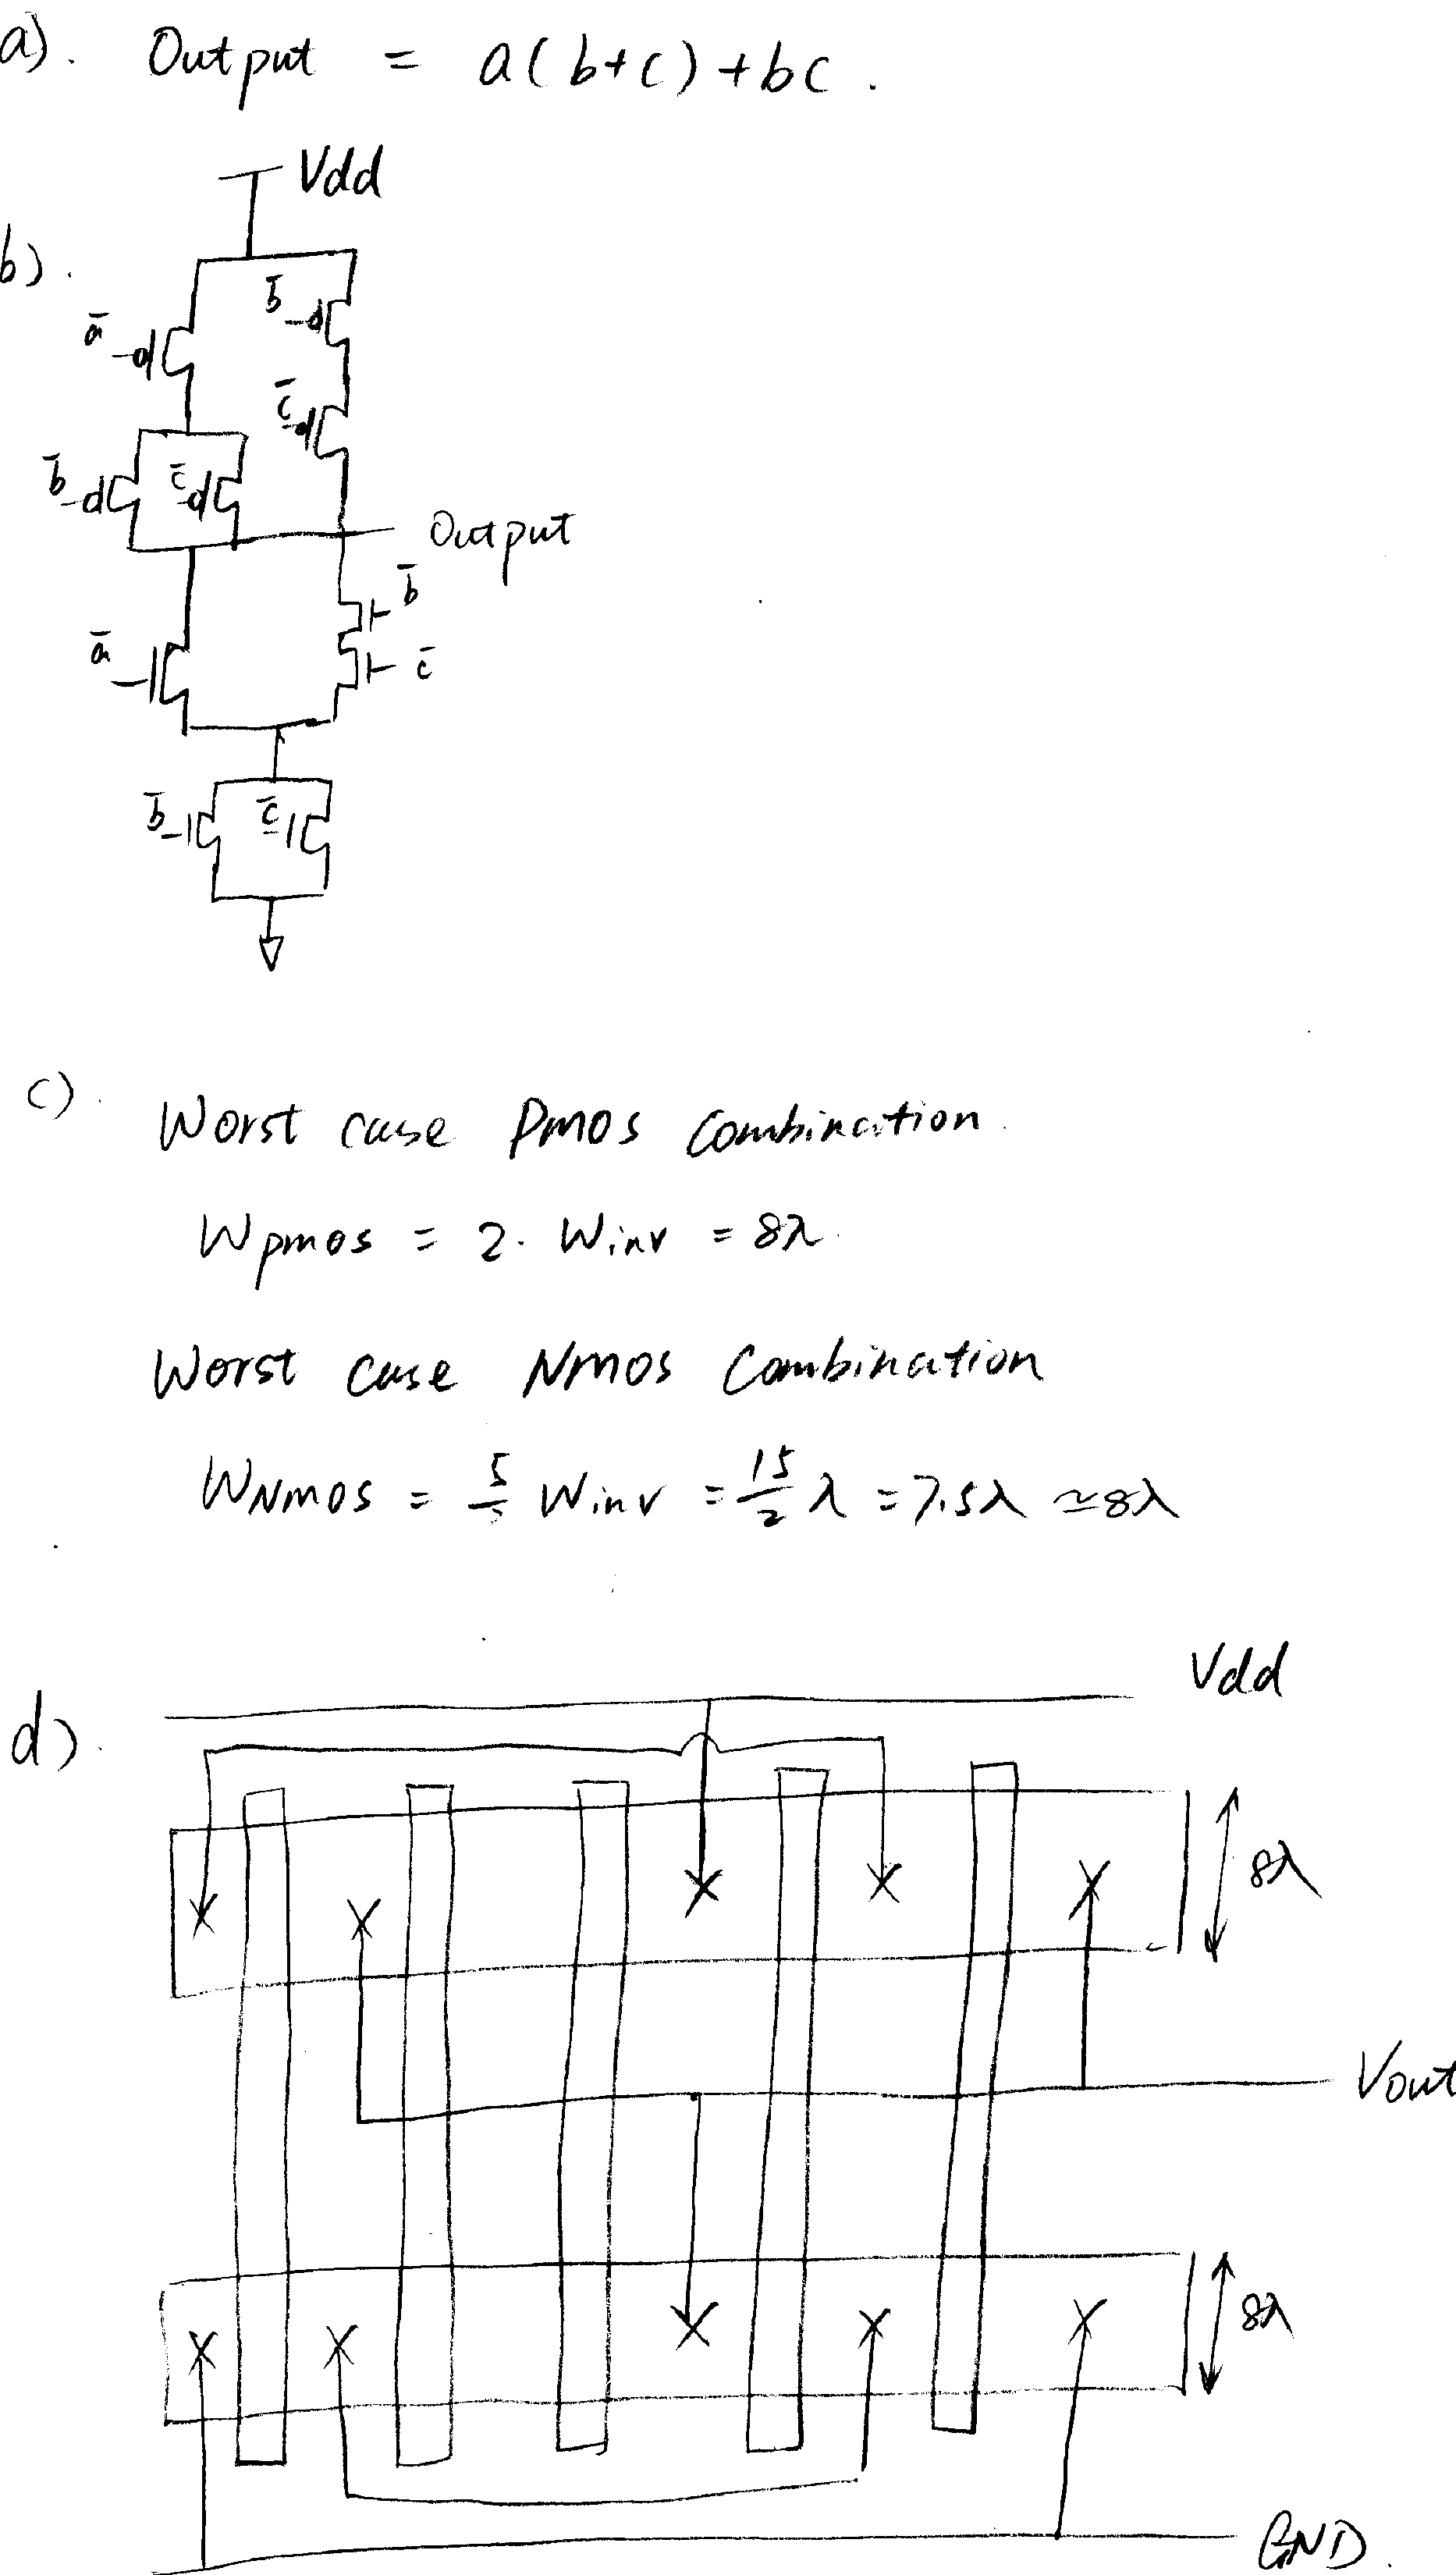 a). Output = a(b+c)+bc.
Vdd
b).
b̄
ā
c̄
b̄ c̄
Output
b̄
ā c̄
b̄ c̄
c).
Worst case Pmos combination.
Wpmos = 2. Winv = 8λ.
Worst case Nmos Combination
WNmos = 5/2 Winv = 15/2 λ = 7.5λ ≃8λ
Vdd
d).
8λ
Vout
8λ
GND.